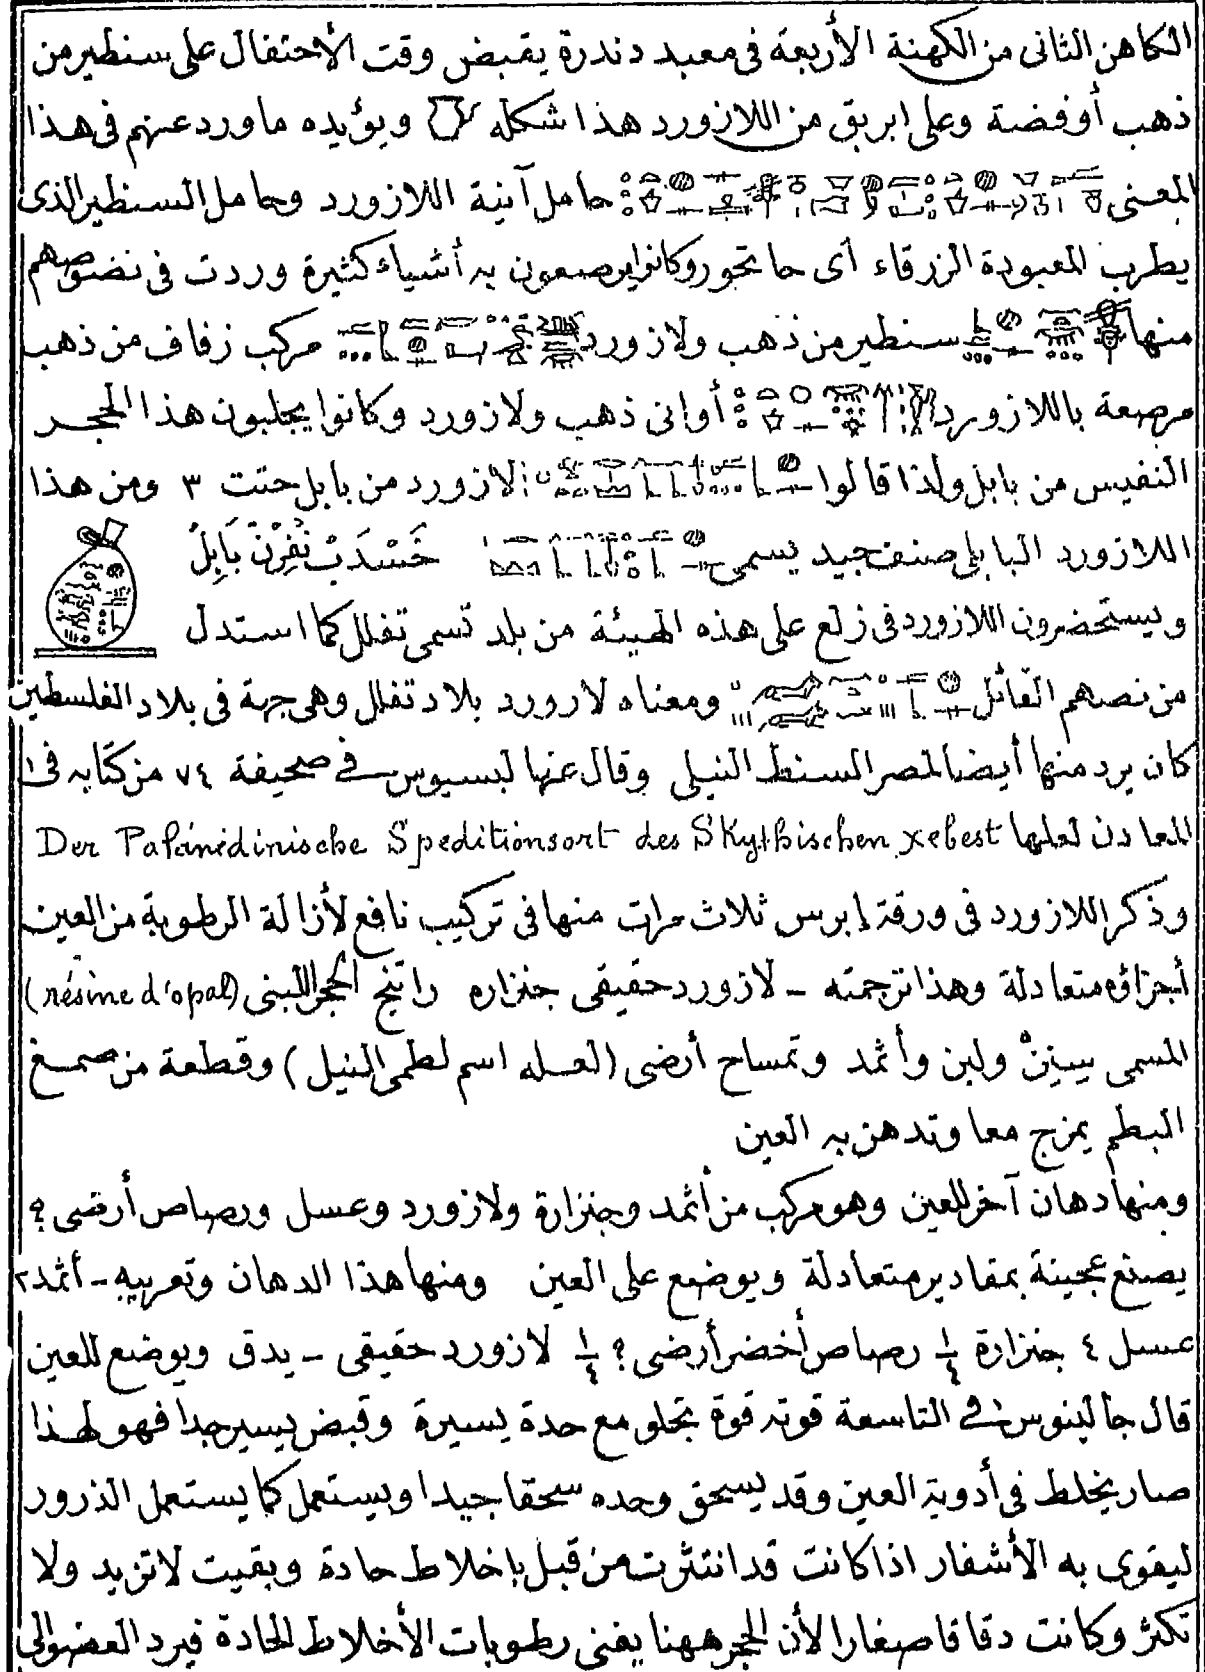 الكاهن الثانى من الكهنة الأربعة فى معبد دندرة يقبض وقت الأحتفال على سنطير من
ذهب أوفضة وعلى ابريق من اللازورد هذا شكله ويؤيده ماورد عنهم فى هذا
المعنى حامل آنية اللازورد وحامل السنطير الذى
يطرب المعبودة الزرقاء أى حاتحور وكانوا يرصعون به أشياء كثيرة وردت فى نصوصهم
منها سنطير من ذهب ولازورد مركب زفاف من ذهب
مرصعة باللازورد أوانى ذهب ولازورد وكانوا يجلبون هذا الحجر
النفيس من بابل ولذا قالوا لازورد من بابل حتت ٣ ومن هذا
اللازورد البابلى صنف جيد يسمى خَسْدَبْ نُفِرْنْ بَابِلُ
ويستحضرون اللازورد فى زلع على هذه الهيئة من بلد تسمى تفلل كما استدل
من نصهم القائل ومعناه لازورد بلاد تفلل وهى جهة فى بلاد الفلسطين
كان يرد منها أيضا لمصر السنط النيلى وقال عنها لبسيوس فى صحيفة ٧٤ من كتابه فى
المعادن لعلها Der Pafänidinische Speditionsort des Skythischen xebest
وذكر اللازورد فى ورقة إبرس ثلاث مرات منها فى تركيب نافع لأزالة الرطوبة من العين
أجزاؤه متعادلة وهذا ترجمته - لازورد حقيقى جنزاره راتنج الحجر اللبنى (résine d'opal)
المسمى ولبن وأثمد وتمساح أرضى (لعله اسم لطمى النيل) وقطعة من صمغ
البطم يمزج معا وتدهن به العين
ومنها دهان آخر للعين وهو مركب من أثمد وجنزارة ولازورد وعسل ورصاص أرضى ؟
يصنع عجينة بمقادير متعادلة ويوضع على العين ومنها هذا الدهان وتعريبه - أثمد ٢
عسل ٤ جنزارة ١/٤ رصاص أخضر أرضى ؟ ١/٤ لازورد حقيقى - يدق ويوضع للعين
قال جالينوس فى التاسعة قوته قوة تجلو مع حدة يسيرة وقبض يسير جدا فهو لهذا
صار يخلط فى أدوية العين وقد يسحق وحده سحقا جيدا ويستعمل كما يستعمل الذرور
ليقوى به الأشفار اذا كانت قد انتثرت من قبل باخلاط حادة وبقيت لاتزيد ولا
تكثر وكانت دقاقا صغارا لأن الحجر ههنا يفنى رطوبات الأخلاط الحادة فيرد العضو الى